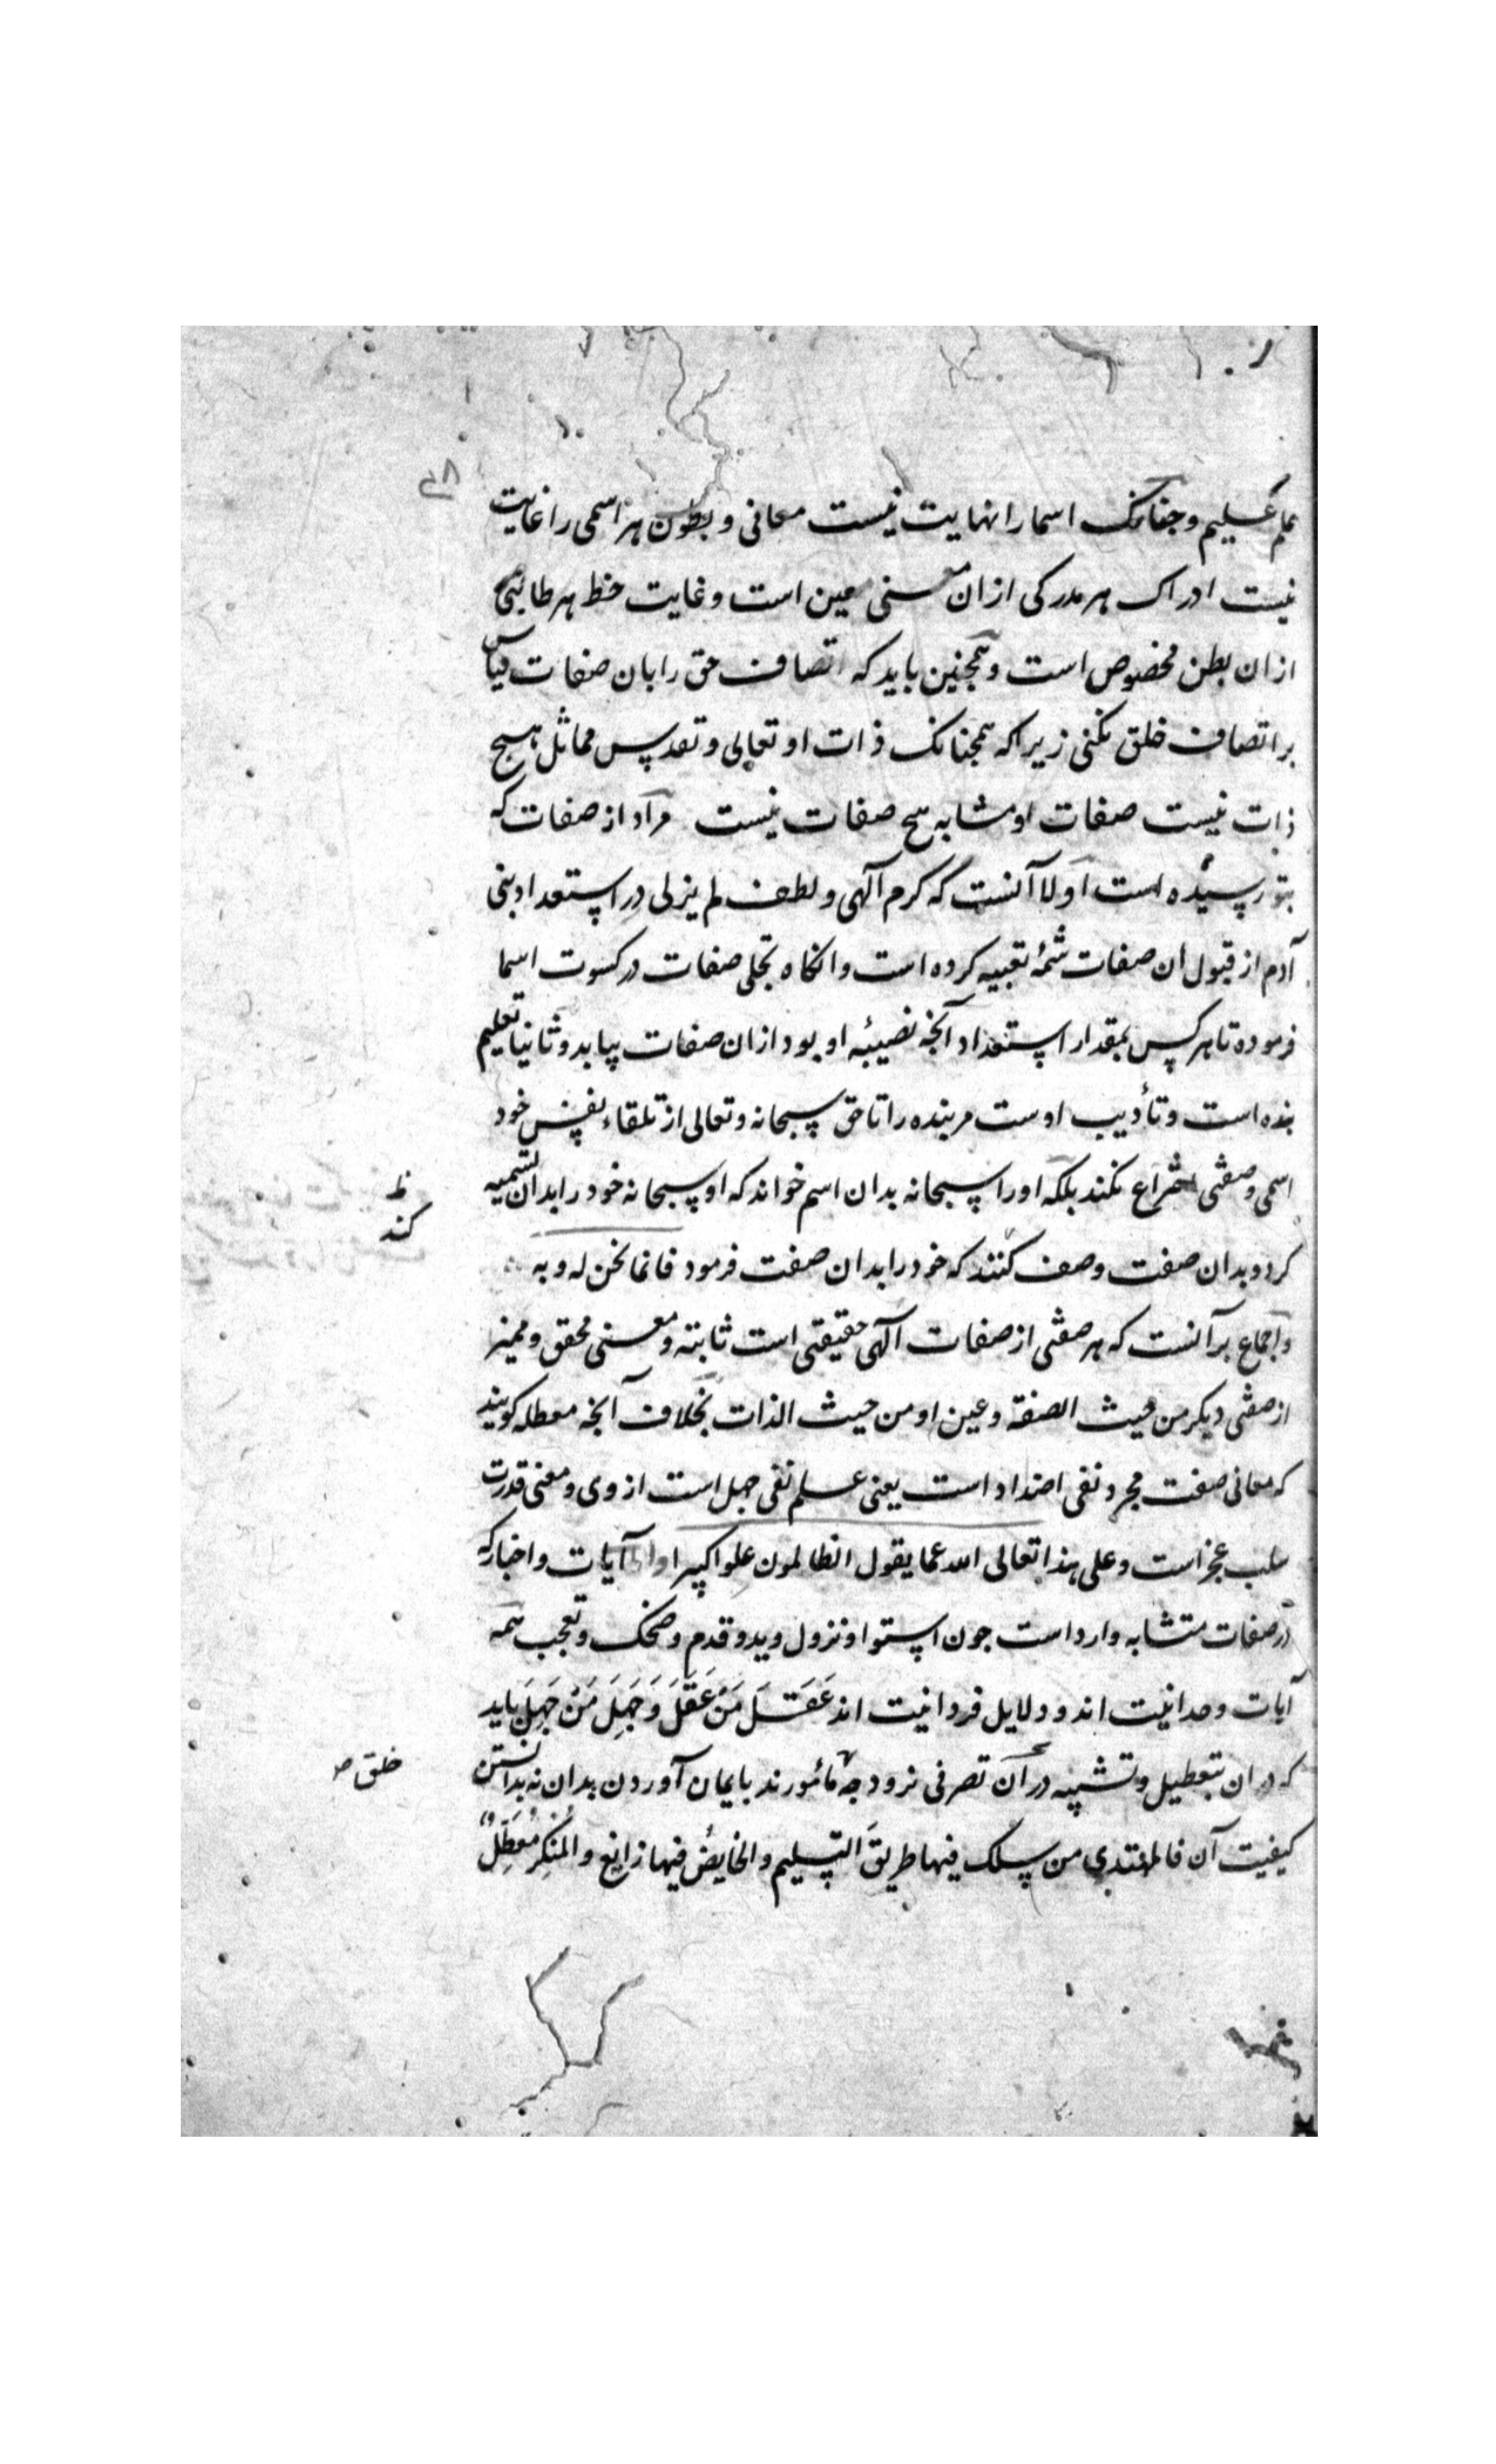 علم علیم وجنانک اسما را نهایت نیست معانی و بطون هر اسمی را غایت
نیست ادراک هر مدرکی ازان معنی معین است و غایت حظ هر طالبی
ازان بطن مخصوص است و همجنین باید که اتصاف حق را بان صفات قیاس
بر اتصاف خلق نکنی زیرا که همجنانک ذات او تعالی و تقدس مماثل هیچ
ذات نیست صفات او مشابه هیح صفات نیست مراد از صفات که
بتو رسیده است اولا آنست که کرم آلهی و لطف لم یزلی در استعداد بنی
آدم از قبول ان صفات شمهٔ تعبیه کرده است وانکاه تجلی صفات در کسوت اسما
فرموده تا هر کس بمقدار استعداد آنجه نصیبهٔ او بود ازان صفات بیابد و ثانیا تعلیم
بنده است و تأدیب اوست مر بنده را تا حق سبحانه و تعالی از تلقاء نفس خود
اسمی و صفتی اختراع نکند بلکه اورا سبحانه بدان اسم خواند که او سبحانه خود را بدان تسمیه
کرد و بدان صفت وصف کنند که خود را بدان صفت فرمود فانما نحن له و به
واجماع بر آنست که هر صفتی از صفات آلهی حقیقتی است ثابته و معنی محقق و ممیز
از صفتی دیکر من حیث الصفة و عین او من حیث الذات بخلاف آنجه معطله کویند
که معانی صفت مجرد نفی اضداد است یعنی علم نفی جهل است از وی و معنی قدرت
سلب عجز است و علی هذا تعالی الله عما یقول الظالمون علوا کبیرا واما آیات و اخبار که
در صفات متشابه وارد است جون استوا و نزول و ید و قدم و ضحک و تعجب همه
آیات وحدانیت اند و دلایل فردانیت اند عَقَلَ مَنْ عَقَلَ وَجَهِلَ مَنْ جَهِلَ باید
که دران بتعطیل و تشبیه در آن تصرفی نرود جه مأمورند بایمان آوردن بدان نه بدانستن
کیفیت آن فالمهتدی من سلک فیها طریقَ التسلیم والخایضُ فیها زایغ والمُنکِر مُعَطِّلٌ
ظ
کند
خلق ص